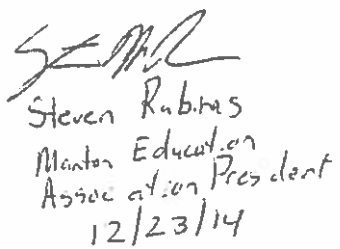 Steven Rubinas
Manton Education
Association President
12/23/14